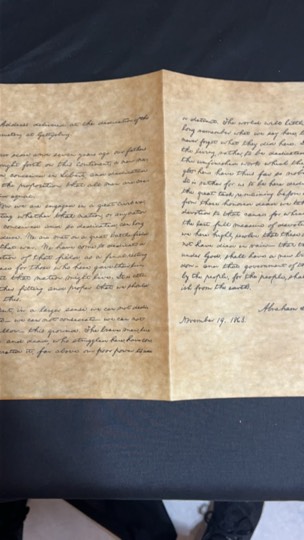 Address delivered at the dedication of the
cemetery at Gettysburg.
score and seven years ago our fathers
brought forth on this continent, a new na-
conceived in Liberty, and dedicated
the proposition that all men are cre-
equal.
Now we are engaged in a great civil war,
testing whether that nation, or any nation
so conceived and so dedicated, can long
endure. We are met on a great battle field
of that war. We have come to dedicate a
portion of that field, as a final resting
place for those who here gave their
that that nation might live. It is alto-
gether fitting and proper that we should
this.
But, in a larger sense, we can not dedi-
cate— we can not consecrate— we can not
hallow— this ground. The brave men, liv-
ing and dead, who struggled here have con-
secrated it, far above our poor power to add
or detract. The world will little
long remember what we say here,
never forget what they did here.
the living, rather, to be dedicated
the unfinished work which they
fought here have thus far so nobly
It is rather for us to be here
the great task remaining before
from these honored dead we take
devotion to that cause for which
the last full measure of devotion
we here highly resolve that these
not have died in vain— that this
under God, shall have a new birth
dom— and that government of
by the people, for the people, shall
ish from the earth.
Abraham
November 19, 1863.